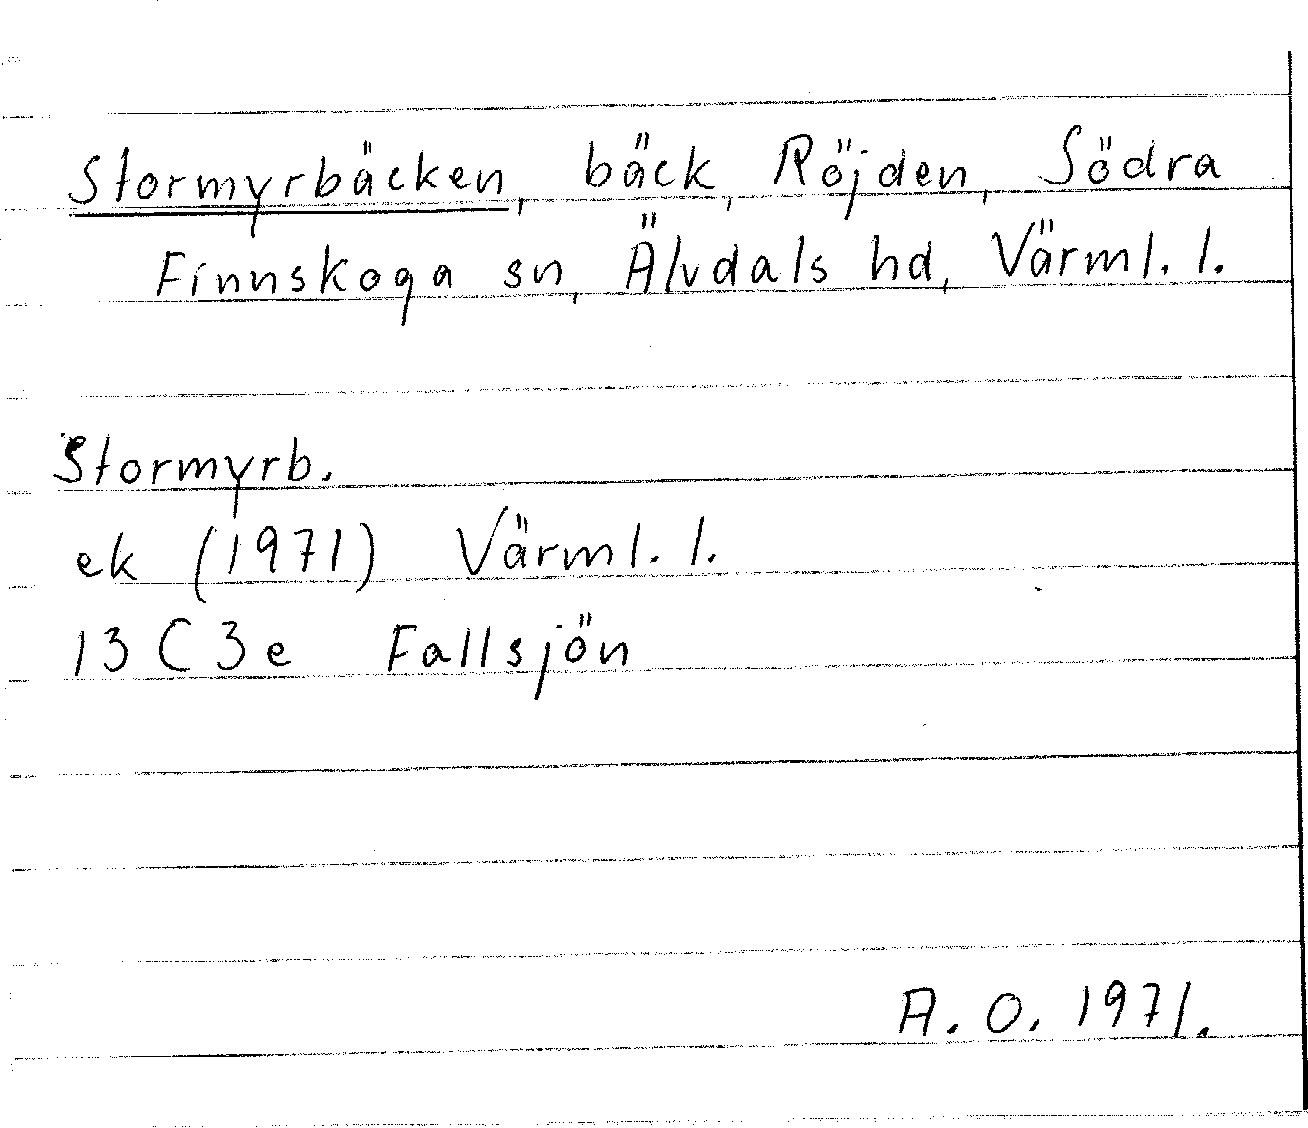 Stormyrbäcken, bäck, Röjden, Södra
Finnskoga sn, Älvdals hd, Värml. l.
Stormyrb.
ek (1971) Värml. l.
13 C 3e Fallsjön
A. O. 1971.